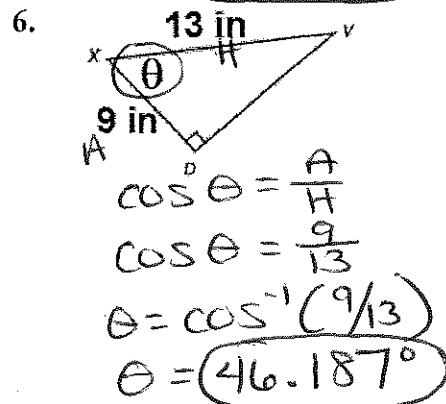 6.
13 in
H
X
V
θ
9 in
A
D
cos θ = A/H
cos θ = 9/13
θ = cos⁻¹ (9/13)
θ = 46.187°